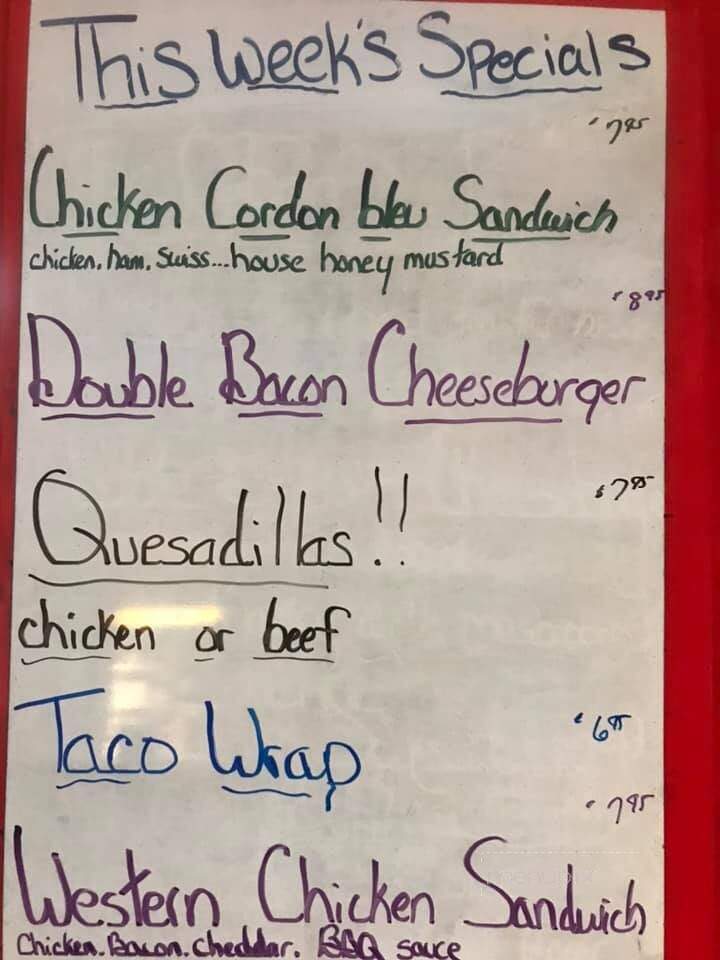 This Week's Specials
$7.95
Chicken Cordon bleu Sandwich
chicken. ham. Swiss...house honey mustard
$8.95
Double Bacon Cheeseburger
$7.95
Quesadillas!!
chicken or beef
$6.95
Taco Wrap
$7.95
Western Chicken Sandwich
Chicken. Bacon. cheddar. BBQ sauce